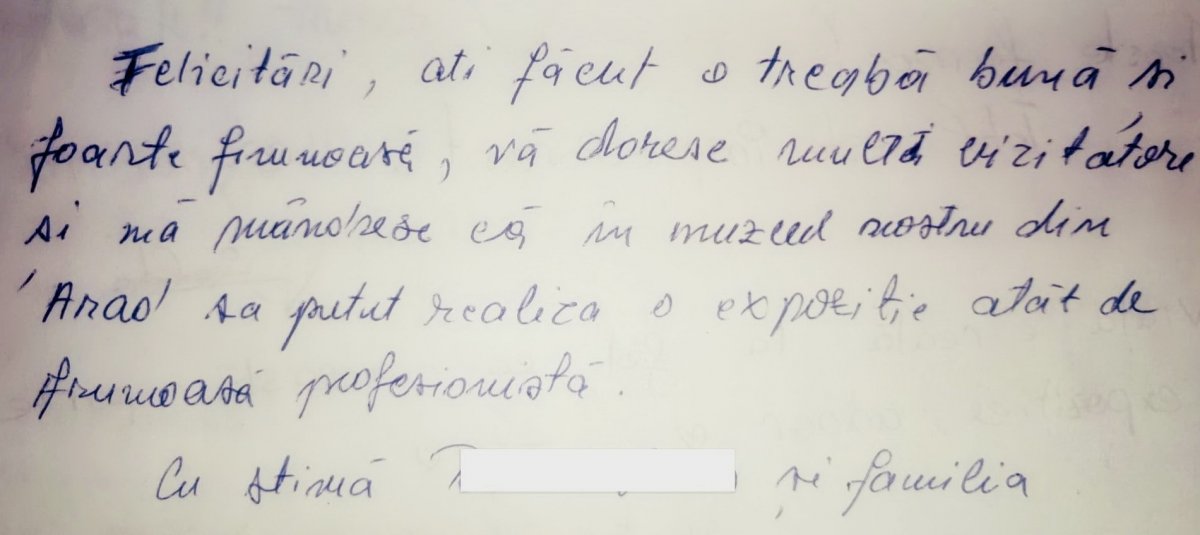 Felicitări, ati făcut o treabă bună si
foarte frumoasă, vă doresc multă vizitatore
si mă mândresc că în muzeul nostru din
Arad sa putut realiza o expozitie atât de
frumoasă profesionistă.
Cu stimă și familia